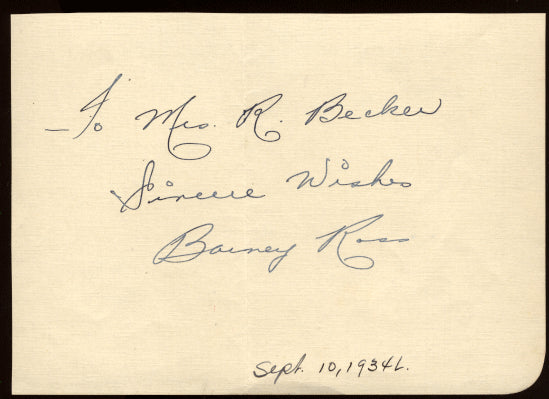 To Mrs. R. Becker
Sincere Wishes
Barney Ross
Sept. 10, 1934L.